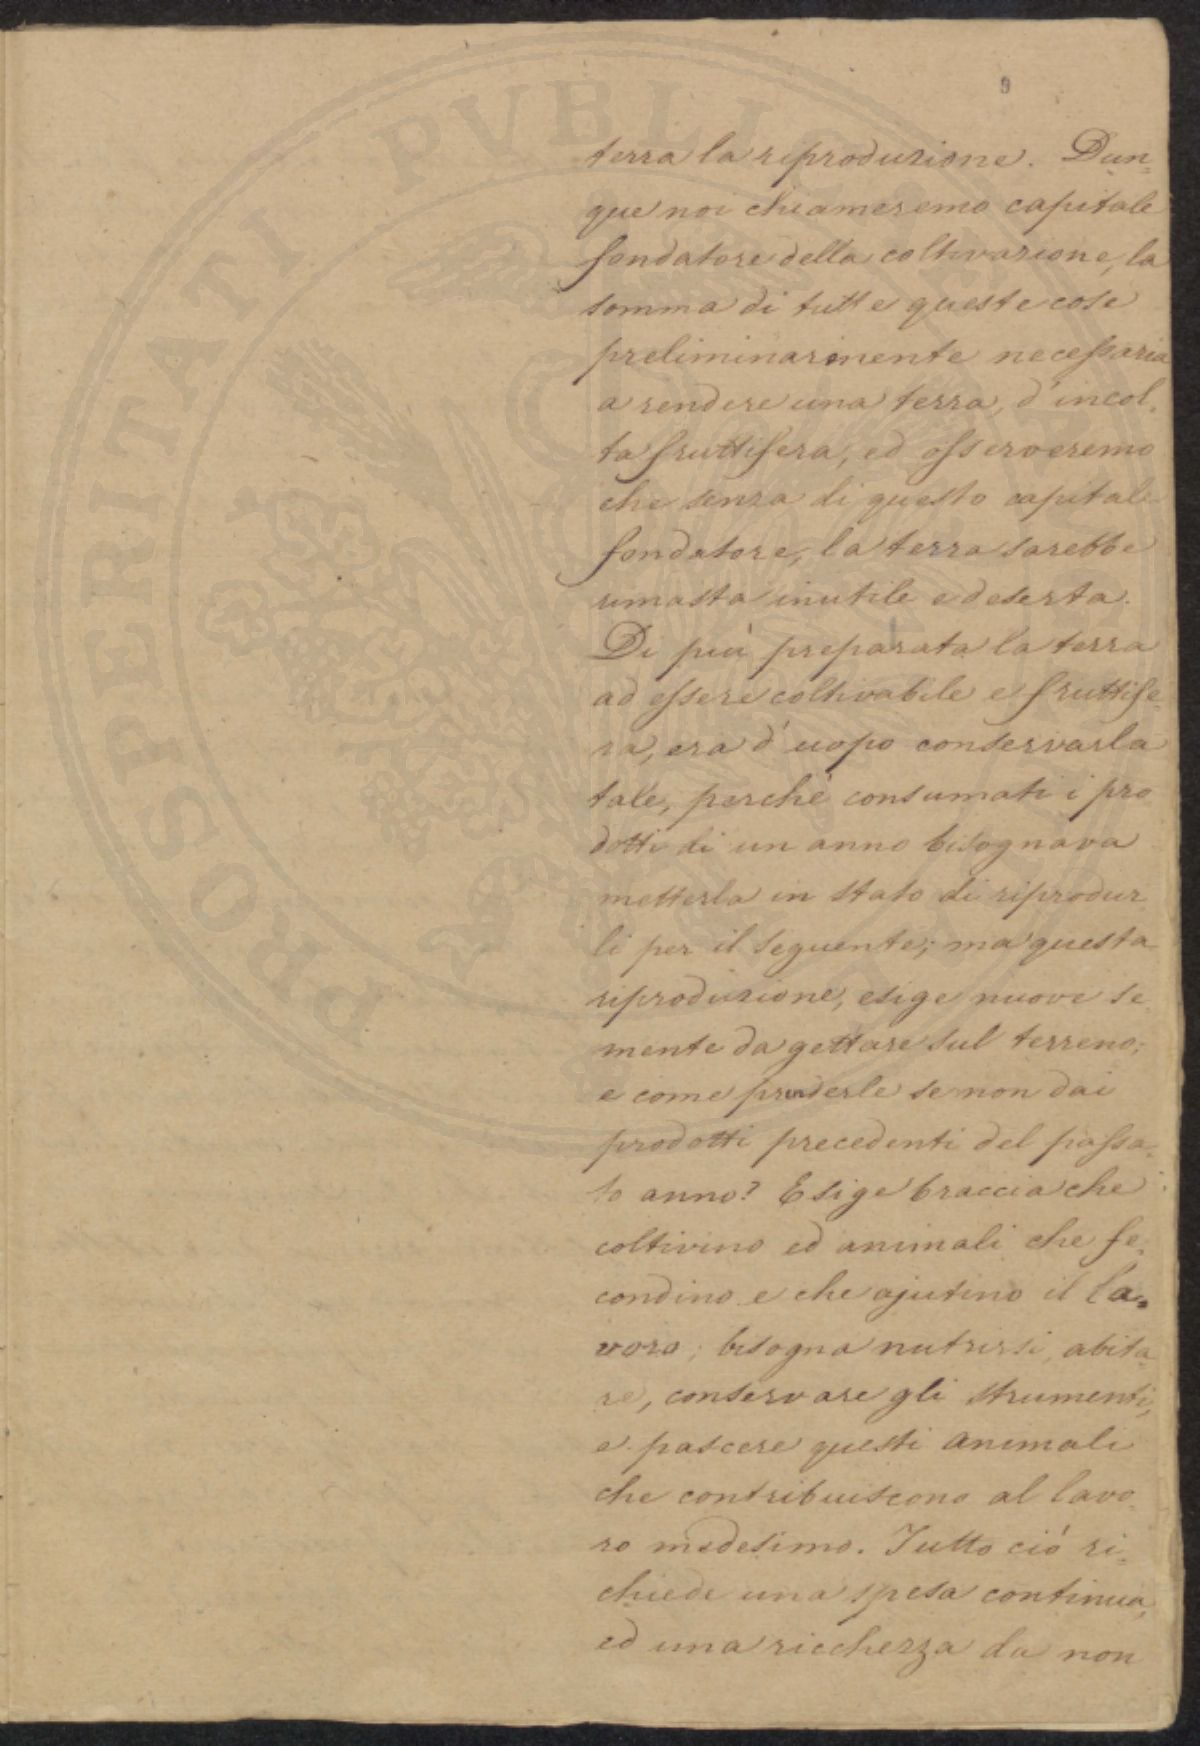 9
terra la riproduzione. Dun-
que noi chiameremo capitale
fondatore della coltivazione, la
somma di tutte queste cose
preliminarmente necessaria
a rendere una terra, d'incol-
ta fruttifera, ed osserveremo
che senza di questo capitale
fondatore, la terra sarebbe
rimasta inutile e deserta.
Di più preparata la terra
ad essere coltivabile e fruttife-
ra, era d'uopo conservarla
tale, perché consumati i pro
dotti di un anno bisognava
metterla in stato di riprodur
li per il seguente; ma questa
riproduzione, esige nuove se-
mente da gettare sul terreno;
e come prenderle se non dai
prodotti precedenti del passa-
to anno? Esige braccia che
coltivino ed animali che fe-
condino e che ajutino il la-
voro; bisogna nutrirsi, abita-
re, conservare gli strumenti,
e pascere questi animali
che contribuiscono al lavo-
ro medesimo. Tutto ciò ri-
chiede una spesa continua,
ed una ricchezza da non
PROSPERITATI PVBLICAE